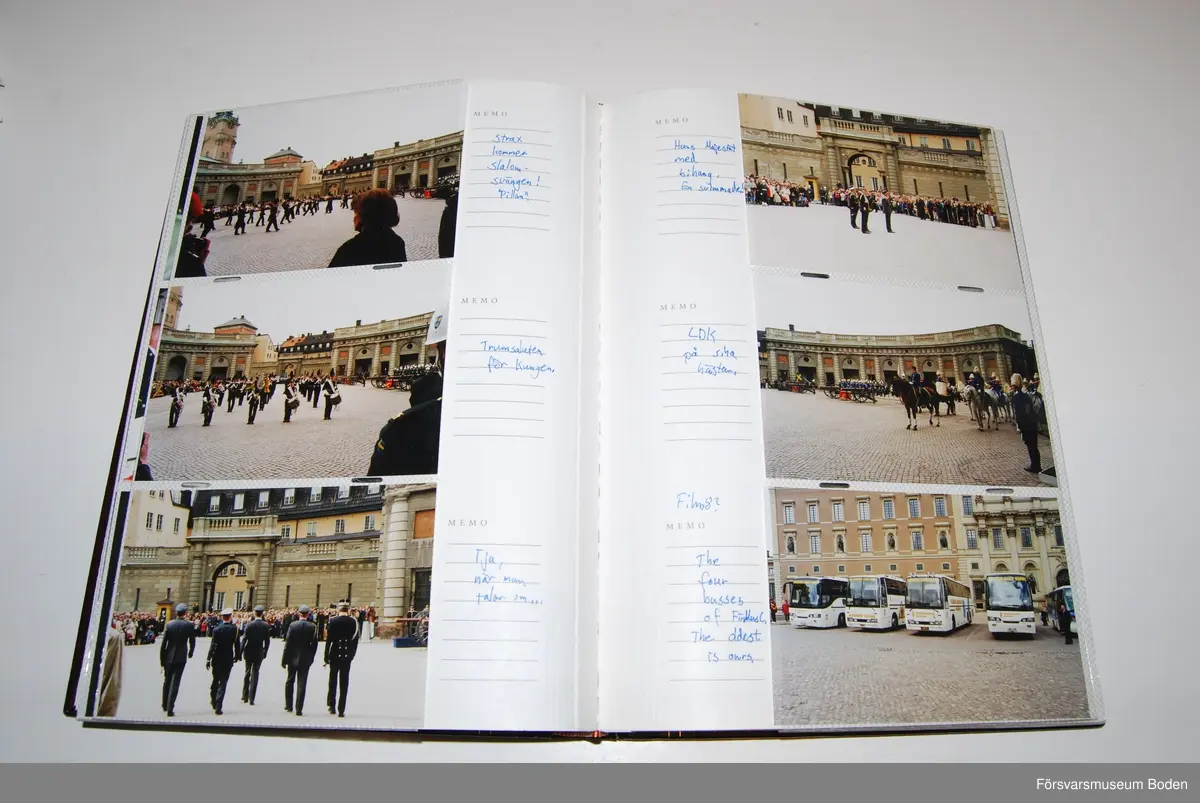 MEMO
Strax
kommer
slalom-
svängen!
"Pilen"
MEMO
Trumsaluten
för kungen.
MEMO
Tja,
när man
talar om...
MEMO
Hans Majestät
med
bihang.
En svimmade!
MEMO
LDK
på sina
hästar.
Film 8?
MEMO
The
four
busses
of FöMusC,
The oldest
is ours,
Försvarsmuseum Boden